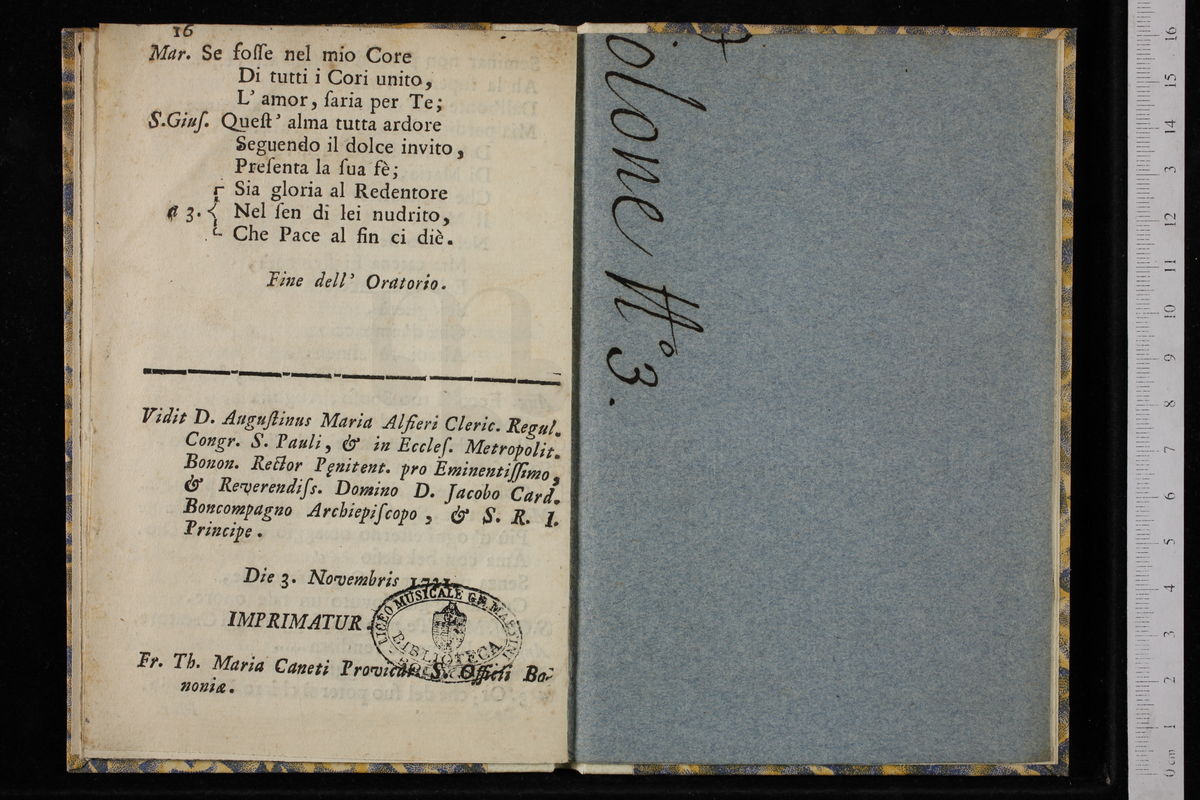 16
Mar. Se foſſe nel mio Core
Di tutti i Cori unito,
L' amor, ſaria per Te;
S.Giuſ. Queſt' alma tutta ardore
Seguendo il dolce invito,
Preſenta la ſua fè;
Sia gloria al Redentore
a 3. Nel ſen di lei nudrito,
Che Pace al fin ci diè.
Fine dell' Oratorio.
Vidit D. Auguſtinus Maria Alfieri Cleric. Regul.
Congr. S. Pauli, & in Eccleſ. Metropolit.
Bonon. Rector Pęnitent. pro Eminentiſſimo,
& Reverendiſs. Domino D. Jacobo Card.
Boncompagno Archiepiſcopo, & S. R. I.
Principe.
Die 3. Novembris
IMPRIMATUR.
Fr. Th. Maria Caneti Provicar. S. Officii Bo-
noniæ.
LICEO MUSICALE
BIBLIOTECA
olone No 3.
0 cm 1 2 3 4 5 6 7 8 9 10 11 12 13 14 15 16